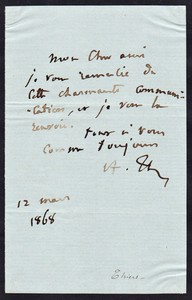 Mon cher ami
je vous remercie de
cette charmante communi-
cation, et je vous la
renvoie. tout à vous
comme toujours
A. Th
12 mars
1868